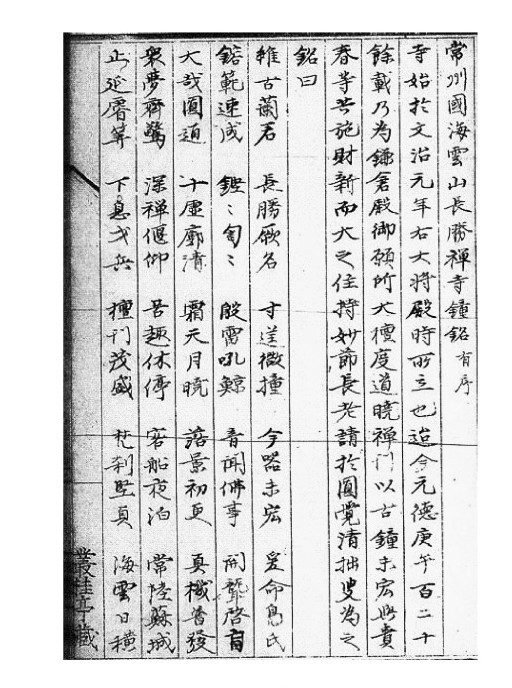 常州國海雲山長勝禅寺鐘銘有序
寺始於文治元年右大将殿時所立也迨今元德庚午百二十
餘載乃為鎌倉殿御願所大檀度道曉禅門以古鐘未宏與貴
春等共施財新而大之住持妙節長老請於圓覺清拙叟為之
銘曰
維古蘭若 長勝厥名 寸莛微撞 今器未宏 爰命鳧氏
鎔範速成 鏗〻匌〻 殷雷吼鯨 音聞佛事 開聾啓盲
大哉圓通 十虛廓清 霜天月曉 落景初更 真機普發
衆夢齊驚 深禅偃仰 苦趣休停 客船夜泊 常陸蘇城
上延齡筭 下息戈兵 檀門茂盛 梵刹堅貞 海雲日横
叢桂亭藏